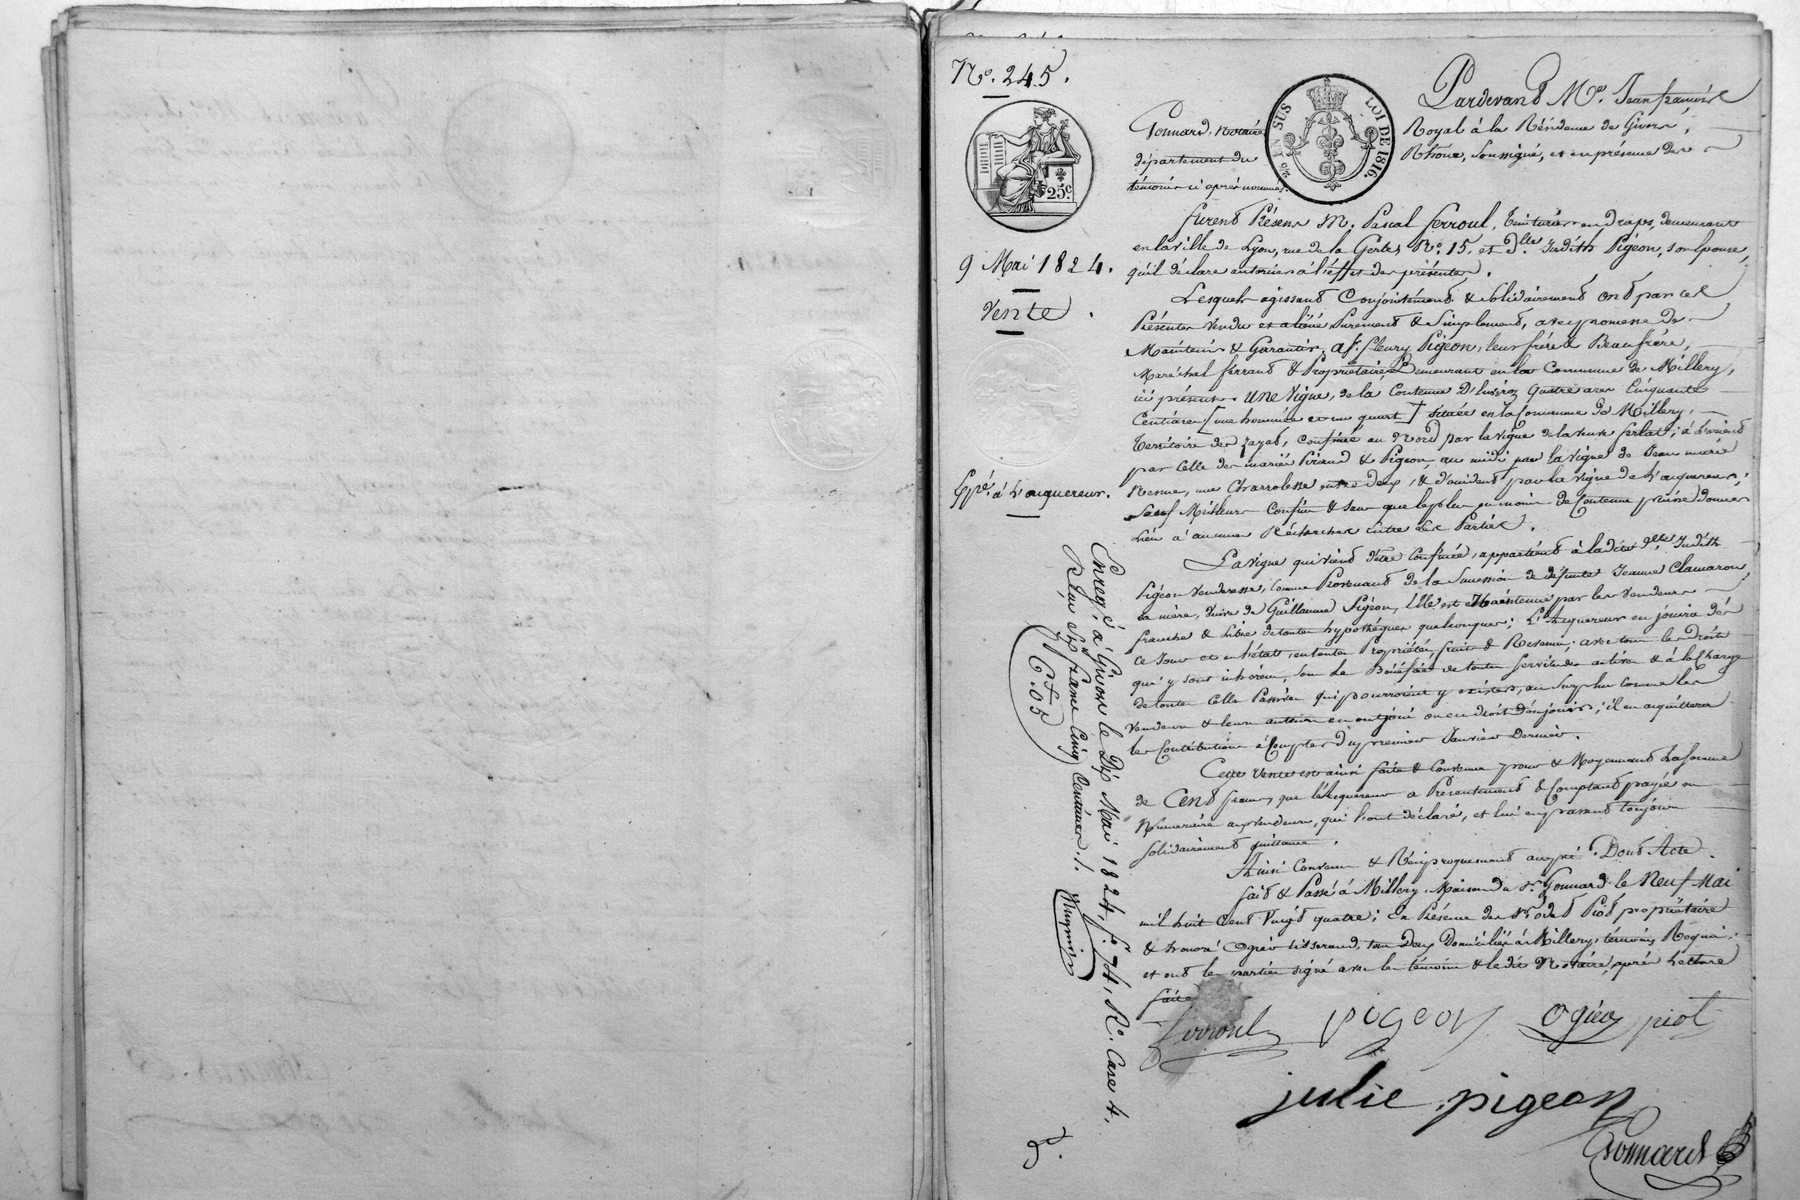 N.o 245.
9 Mai 1824.
Vente
Exp.é à l'acquereur.
25.c
EN SUS
LOI DE 1816.
Pardevand M.e Jean françois
Gonnard, Notaire Royal à la Résidence de Givors,
département du Rhône, soussigné, et en présence des
témoins ci après nommés.
furend Présens M. Pascal ferroul, teinturier en draps, demeurant
en la ville de Lyon, rue de la Gerbes N.o 15, et D.lle Judith Pigeon, son épouse,
qu'il déclare autoriser à l'effet des présentes.
Lesquels agissand Conjointemend & Solidairemend ond par ces
Présentes vendu et aliéné Purement & Simplement, avec promesse de
Maintenir & Garantir, a s.r fleury Pigeon, leur frère & Beaufrère,
Maréchal ferrand & Propriétaire Demeurant en la Commune de Millery,
ici présent, une Vigne, de la Contenue D'environ quatre ares Cinquante
Centiares [une hommée et un quart] située en la Commune de Millery,
territoire des Jayes, confinée au Nord par la vigne de la veuve ferlat; à l'orient
par Celle des mariés Piraud & Pigeon, au midi par la vigne de Jean marie
Resnne, une Charrolesse entre deux, & d'occident par la vigne de l'acquereur;
Sauf Meilleurs Confins & sans que le plus ou moins de Contenue puisse donner
Lieu à aucunes Recherches entre les Parties.
La vigne qui viend d'être Confinée, appartiend à ladite d.lle Judith
Pigeon Venderesse, comme Provenand de la Succession de défunte Jeanne Clamaron,
sa mère, veuve de Guillaume Pigeon, Elle est Maintenue par les vendeurs
franche & Libre de toutes hypothèques quelconques; L'acquereur en jouira dès
ce Jour et en l'état, en toute Propriété, fruits & Revenus; avec tous les Droits
qui y sont inhérens, sous le Bénéfice de toutes servitudes actives & à la Charge
de toutes Celles Passives qui pourroient y exister, au Surplus comme les
vendeurs & leurs auteurs en ont joui ou eu droit d'en jouir; il en acquittera
les Contributions à Compter du premier Janvier Dernier.
Cette vente est ainsi faite & Convenue pour & Moyennand La Somme
de Cend francs, que l'Acquereur a Présentement & Comptand payée en
Numéraire aux vendeurs, qui l'ont déclaré, et lui en passent toujours
solidairemend quittance.
Ainsi Convenu & Réciproquemend accepté. Dont Acte.
faid & Passé à Millery, Maison du s.r Gonnard le Neuf Mai
mil huit Cend Vingt quatre; En Présence des s.rs Piot propriétaire
& honoré Ogier tisserand, tous Deux Domiciliés à Millery, témoins Requis;
et ond les parties signé avec les témoins & ledit Notaire, après Lecture
faite
ferroul pigeon ogier piot
julie pigeon
Gonnard
Enreg.é à Givors le Dix Mai 1824, f.o 74, R.o Case 4,
Reçu Six francs Cinq Centimes./.
6f. 05